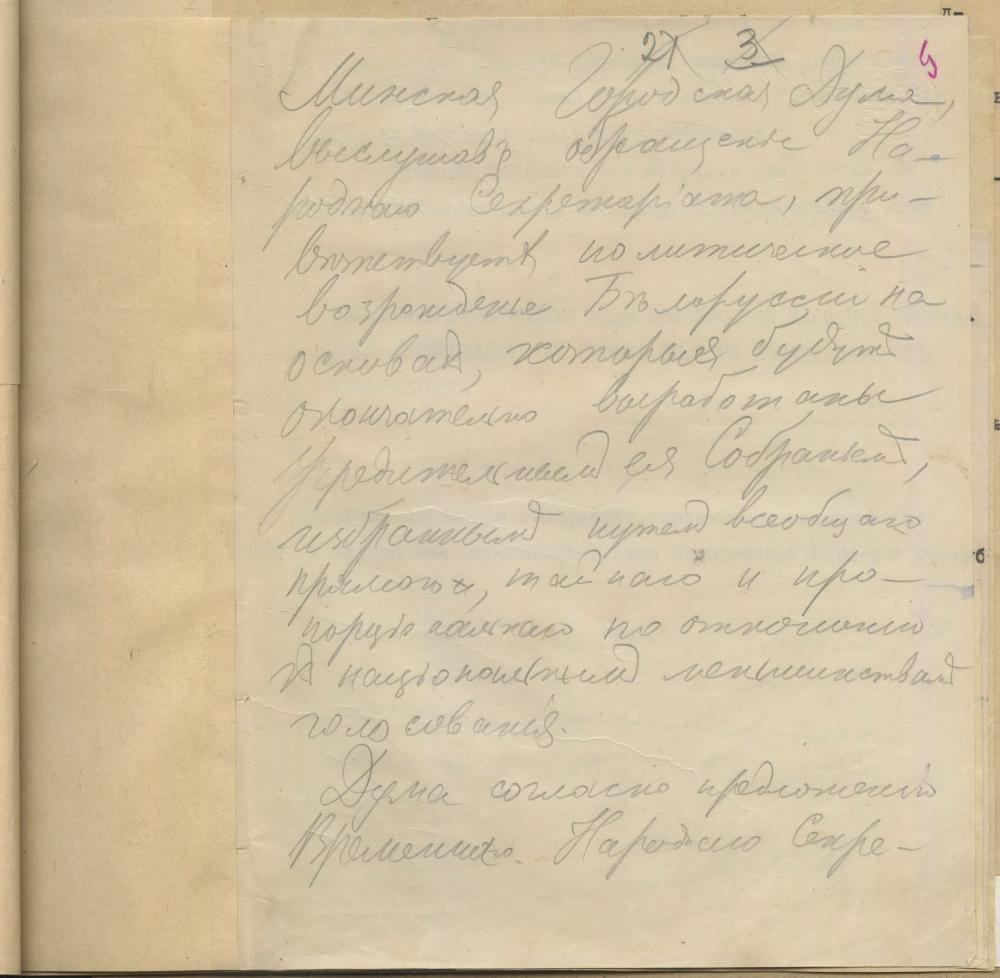 21 3
Минская Городская Дума,
выслушавъ обращенье На-
роднаго Секретаріата, при-
вѣтствуетъ политическое
возрожденье Бѣлоруссіи на
основах, которыя будутъ
окончательно выработаны
Учредительнымъ ея Собраньемъ,
избраннымъ путемъ всеобщаго
прямого, тайнаго и про-
порціональнаго по отношенію
къ національнымъ меньшинствамъ
голосованія.
Дума согласно предложенію
Временнаго Народнаго Секре-